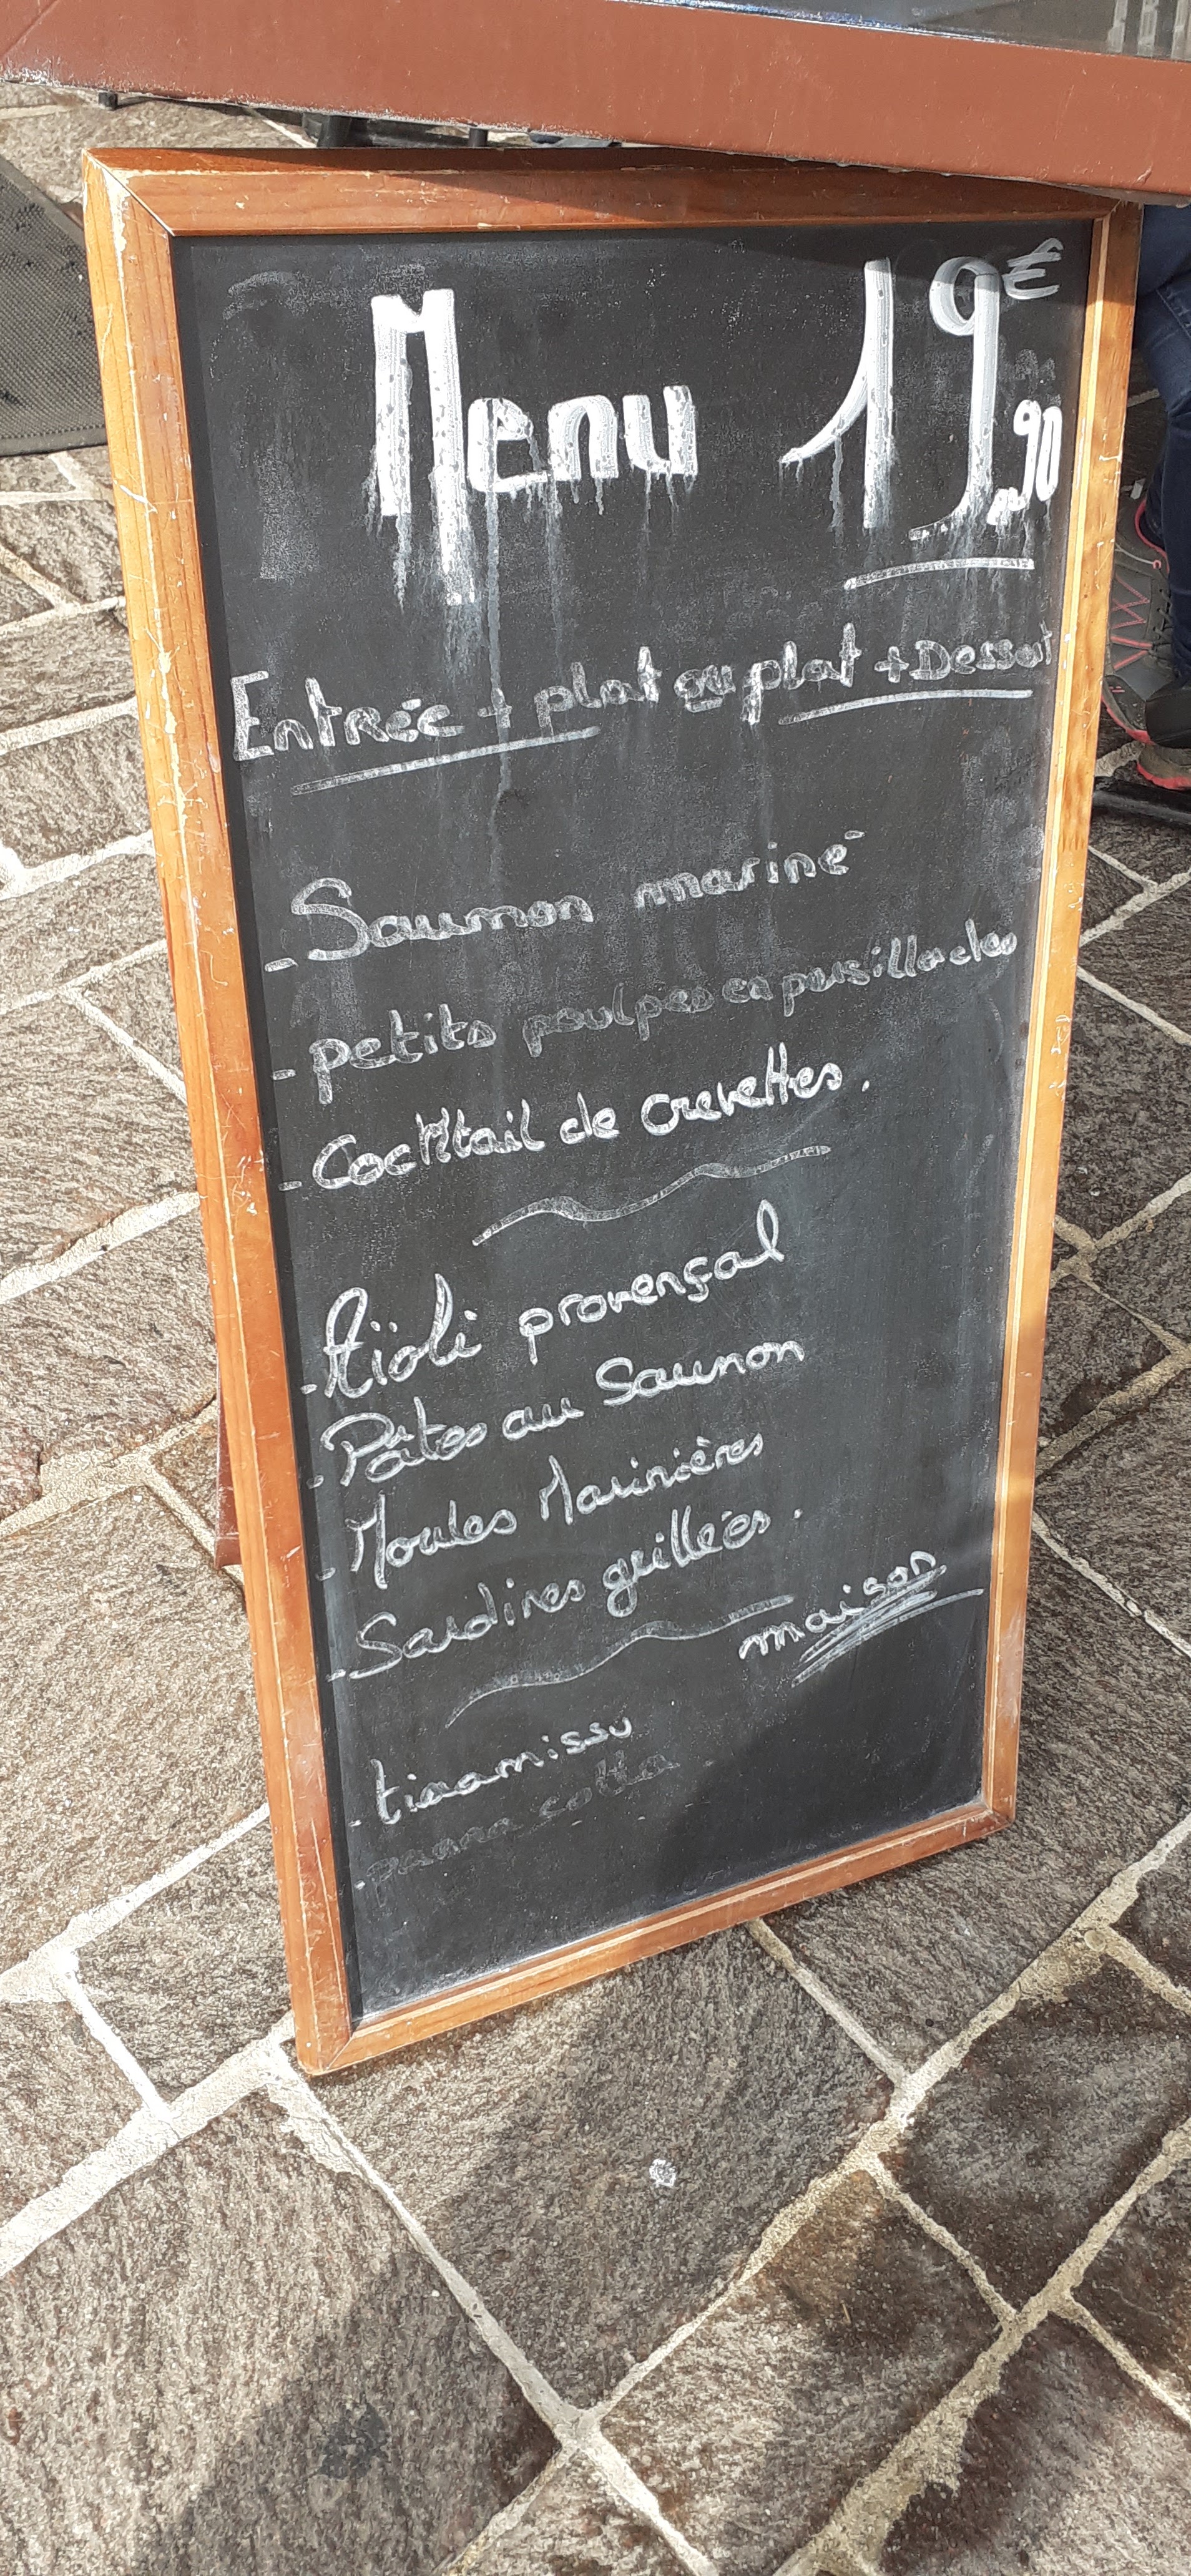 Menu 19€,90
Entrée + plat ou plat + Dessert
- Saumon mariné
- petits poulpes en persillades
- Cocktail de crevettes.
- Aïoli provençal
- Pâtes au Saumon
- Moules Marinières
- Sardines grillées.
maison
- tiramissu
- panna cotta